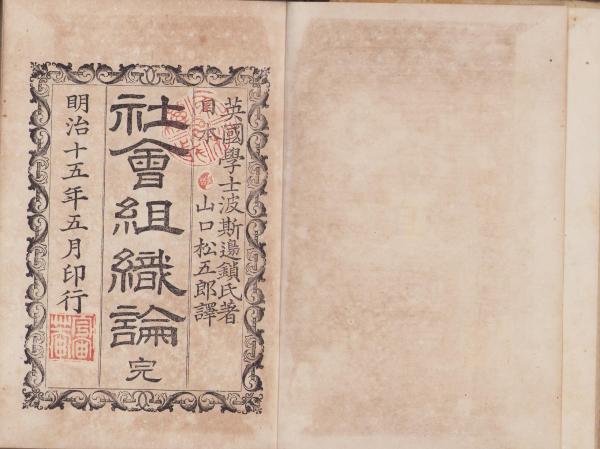 英國學士波斯邊鎖氏著
日本 山口松五郎譯
社會組織論 完
明治十五年五月印行